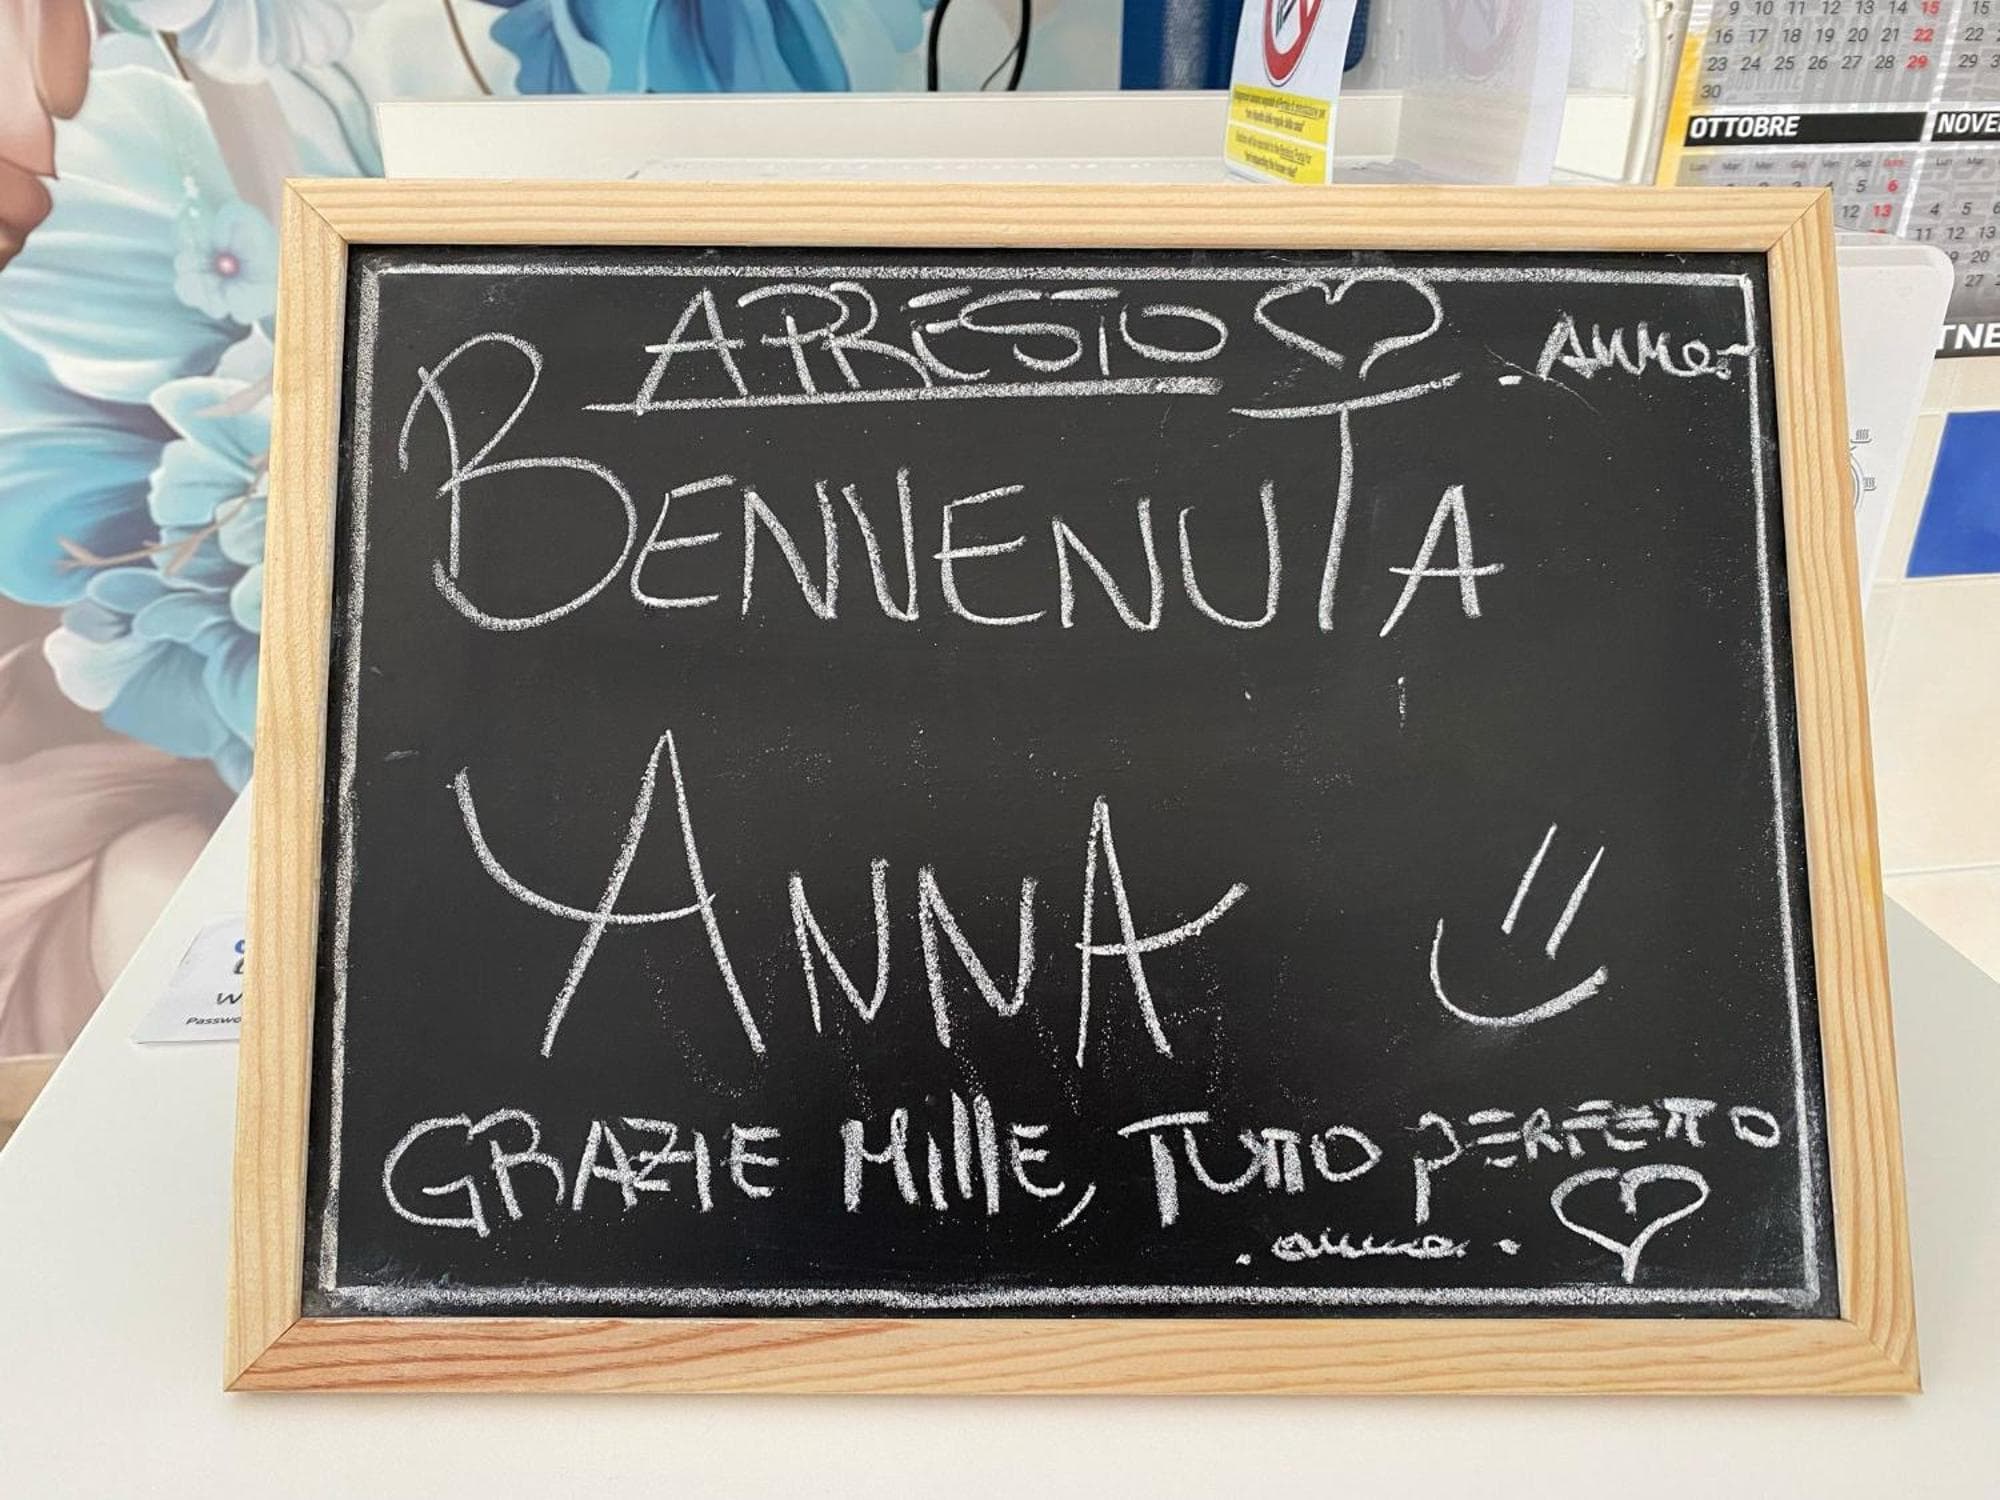 A PRESTO
. Anna.
BENVENUTA
ANNA
GRAZIE MillE, TUTTO PERFETTO
. anna .
9 10 11 12 13 14 15
16 17 18 19 20 21 22
23 24 25 26 27 28 29
30
OTTOBRE
NOVE
5 6
12 13
15
22
29 3
4 5 6
11 12 13
20
27
TNE
W
Passwo